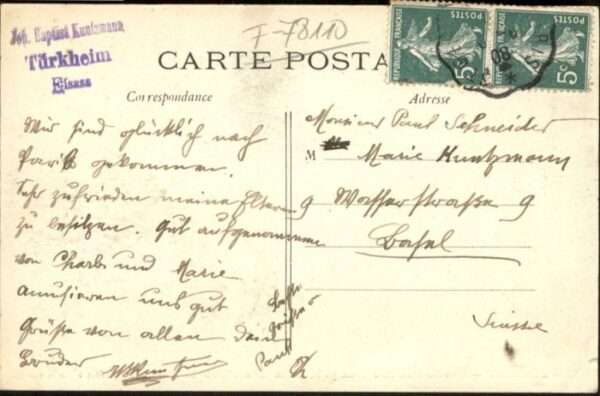 Joh. Baptist Kuntzmann
Türkheim
Elsass
F-78110
CARTE POSTA
Correspondance
Adresse
RÉPUBLIQUE FRANÇAISE
POSTES
5c
RÉPUBLIQUE FRANÇAISE
POSTES
5c
Wir sind glücklich nach
Paris gekommen.
Sehr zufrieden meine Eltern
zu besitzen. Gut aufgenommen
von Charles und Marie
amusieren uns gut
Grüße von allen dein
Bruder
Paul
Monsieur Paul Schneider
M Marie Kuntzmann
9 Wasserstraße 9
Basel
Suisse